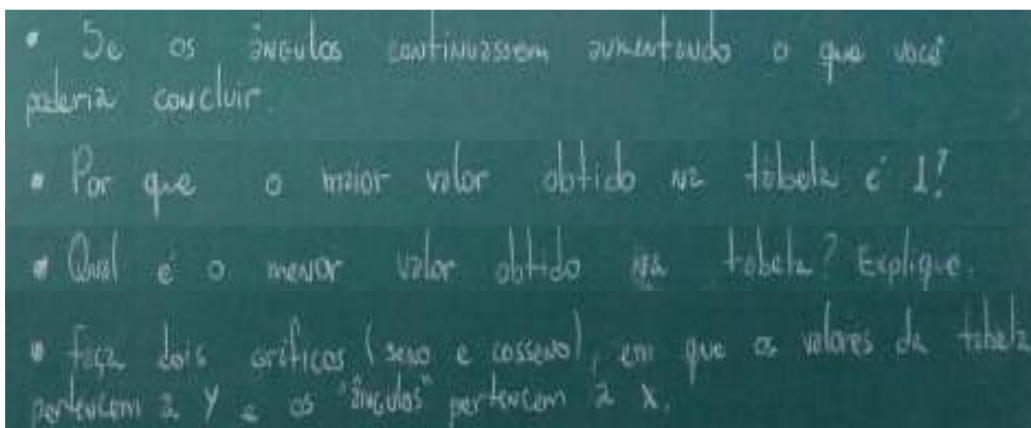 • Se os ângulos continuassem aumentando o que você
poderia concluir.
• Por que o maior valor obtido na tabela é 1?
• Qual é o menor valor obtido na tabela? Explique.
• Faça dois gráficos (seno e cosseno), em que os valores da tabela
pertencem a Y e os "ângulos" pertencem a X.